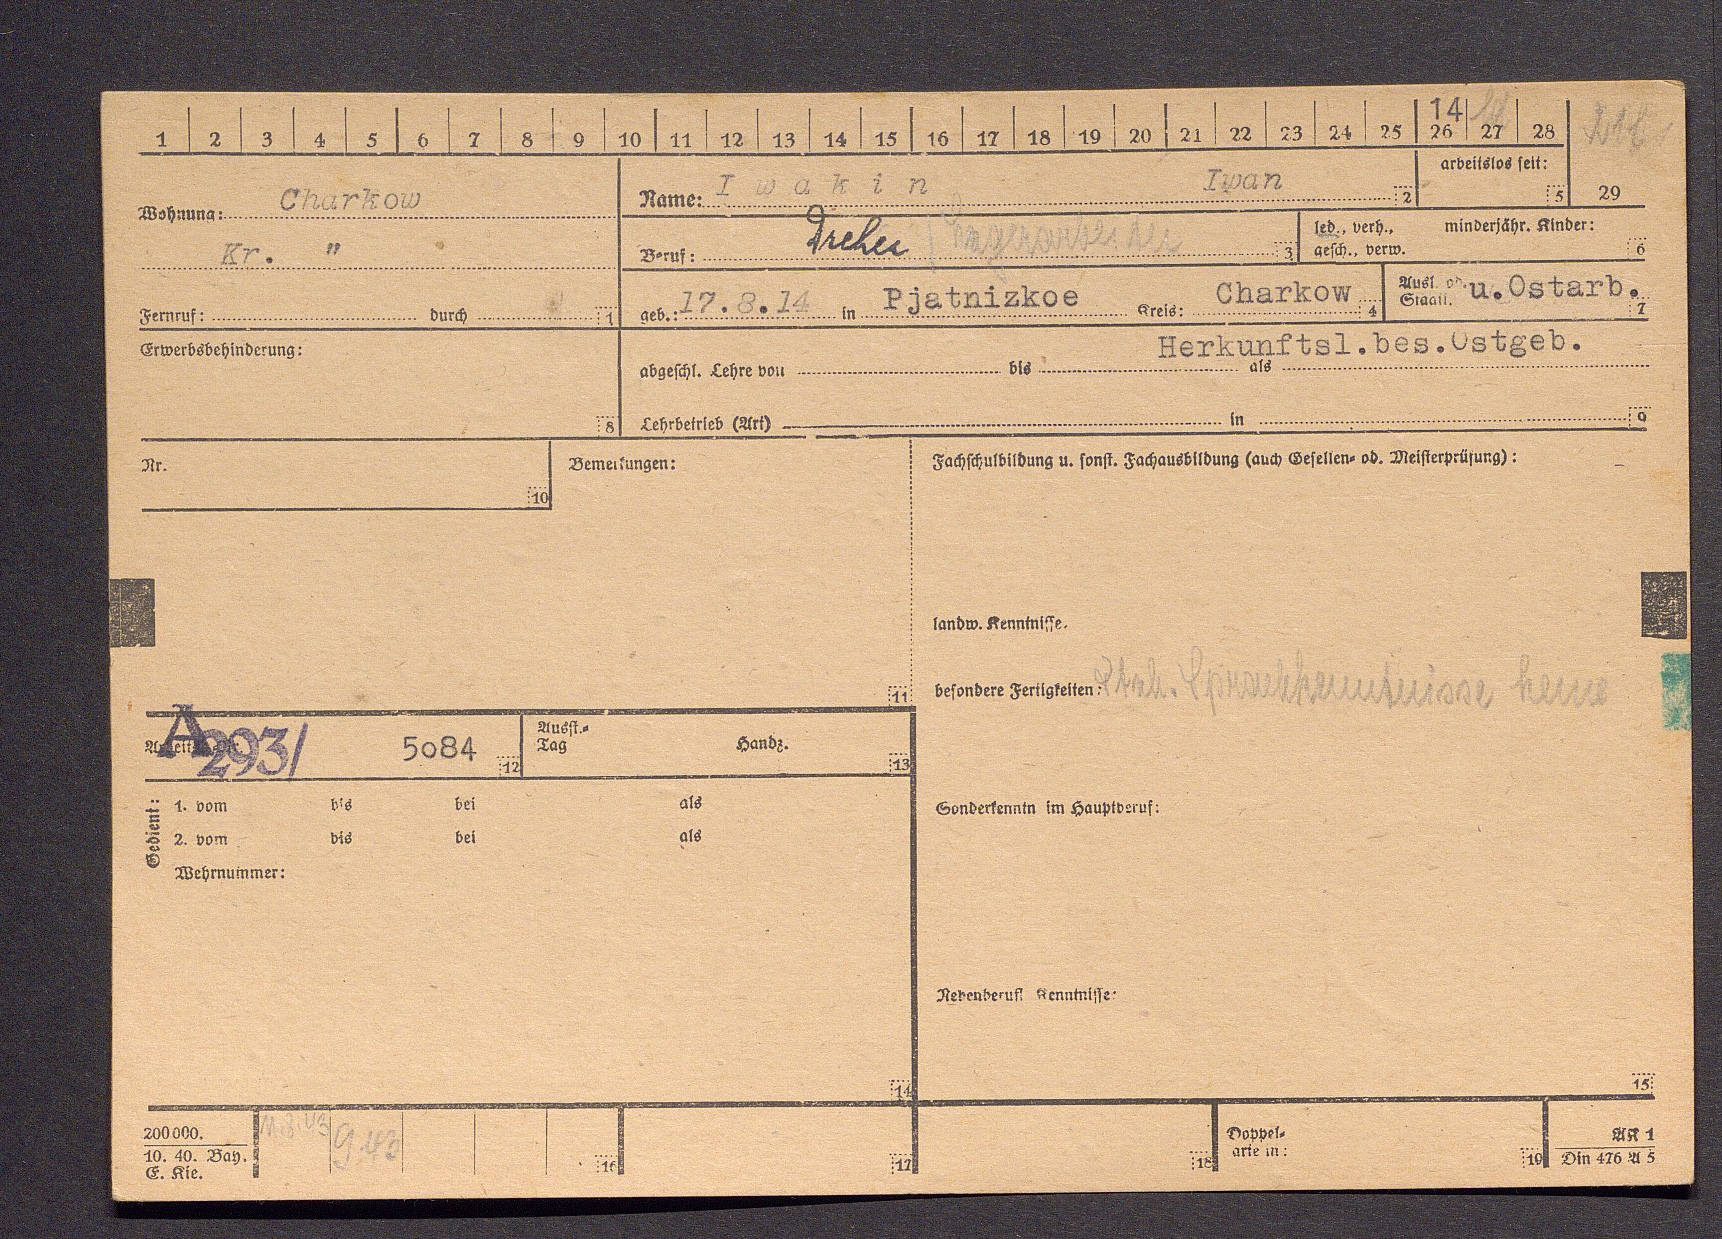 1 2 3 4 5 6 7 8 9 10 11 12 13 14 15 16 17 18 19 20 21 22 23 24 25 26 27 28
14
arbeitslos seit:
5
29
Wohnung: Charkow
Kr. "
Fernruf: durch
1
Name: I w a k i n Iwan
2
Beruf: Dreher
3
led., verh.,
gesch., verw.
minderjähr. Kinder:
6
geb.: 17.8.14 in Pjatnizkoe Kreis: Charkow
4
Ausl. od.
Staatl. u.Ostarb.
7
Erwerbsbehinderung:
8
Herkunftsl.bes.Ostgeb.
abgeschl. Lehre von bis als
Lehrbetrieb (Art) in
9
Nr.
10
Bemerkungen:
11
Fachschulbildung u. sonst. Fachausbildung (auch Gesellen- od. Meisterprüfung):
landw. Kenntnisse.
besondere Fertigkeiten: Sprachkenntnisse keine
A
293/
5084
12
Ausst.-
Tag
Handz.
13
Gedient:
1. vom bis bei als
2. vom bis bei als
Wehrnummer:
14
Sonderkenntn im Hauptberuf:
Nebenberufl Kenntnisse:
15
200000.
10. 40. Bay.
E. Kie.
9.43
16
17
18
Doppel-
arte in:
19
AK 1
Din 476 A 5